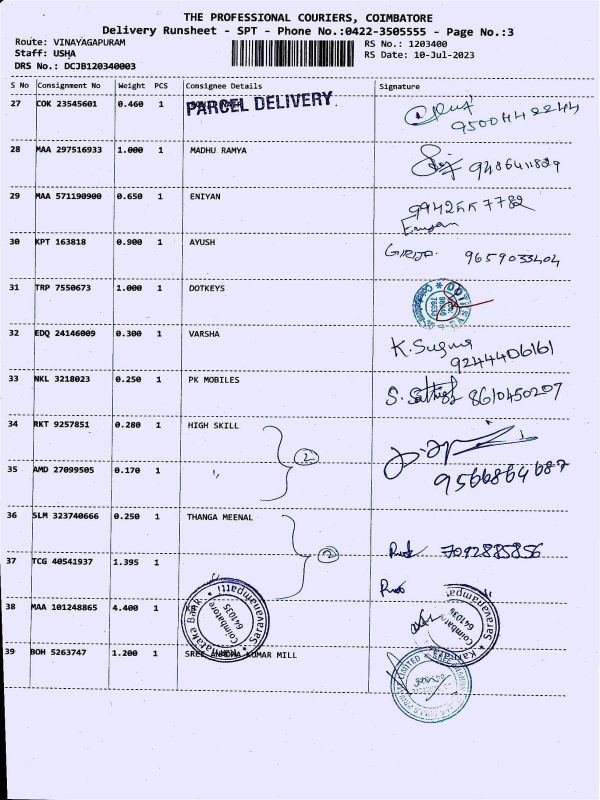 THE PROFESSIONAL COURIERS, COIMBATORE
Delivery Runsheet - SPT - Phone No.:0422-3505555 - Page No.:3
Route: VINAYAGAPURAM RS No.: 1203400
Staff: USHA RS Date: 10-Jul-2023
DRS No.: DCJB120340003
S No Consignment No Weight PCS Consignee Details Signature
27 COK 23545601 0.460 1 PARCEL DELIVERY
28 MAA 297516933 1.000 1 MADHU RAMYA
29 MAA 571190900 0.650 1 ENIYAN
30 KPT 163818 0.900 1 AYUSH GIRIJA. 9659033404
31 TRP 7550673 1.000 1 DOTKEYS
32 EDQ 24146009 0.300 1 VARSHA K. Suguna
9244406161
33 NKL 3218023 0.250 1 PK MOBILES S. Sathish 8610450207
34 RKT 9257851 0.280 1 HIGH SKILL
2
35 AMD 27099505 0.170 1 ,, 9566864687
36 SLM 323740666 0.250 1 THANGA MEENAL
7092885856
2
37 TCG 40541937 1.395 1
38 MAA 101248865 4.400 1 Karnataka Bank Coimbatore 641035 Saravanampatti
Karnataka Coimbatore 641035 Saravanampatti
39 BOH 5263747 1.200 1 SREE KUMAR MILL
PRIVATE LIMITED